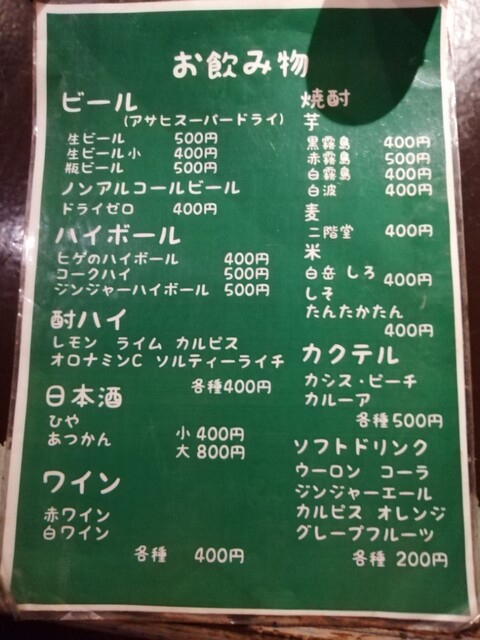 お飲み物
ビール
(アサヒスーパードライ)
生ビール 500円
生ビール小 400円
瓶ビール 500円
ノンアルコールビール
ドライゼロ 400円
ハイボール
ヒゲのハイボール 400円
コークハイ 500円
ジンジャーハイボール 500円
酎ハイ
レモン ライム カルピス
オロナミンC ソルティーライチ
各種400円
日本酒
ひや
あつかん
小 400円
大 800円
ワイン
赤ワイン
白ワイン
各種 400円
焼酎
芋
黒霧島 400円
赤霧島 500円
白霧島 400円
白波 400円
麦
二階堂 400円
米
白岳 しろ 400円
しそ
たんたかたん
400円
カクテル
カシス・ピーチ
カルーア
各種500円
ソフトドリンク
ウーロン コーラ
ジンジャーエール
カルピス オレンジ
グレープフルーツ
各種 200円